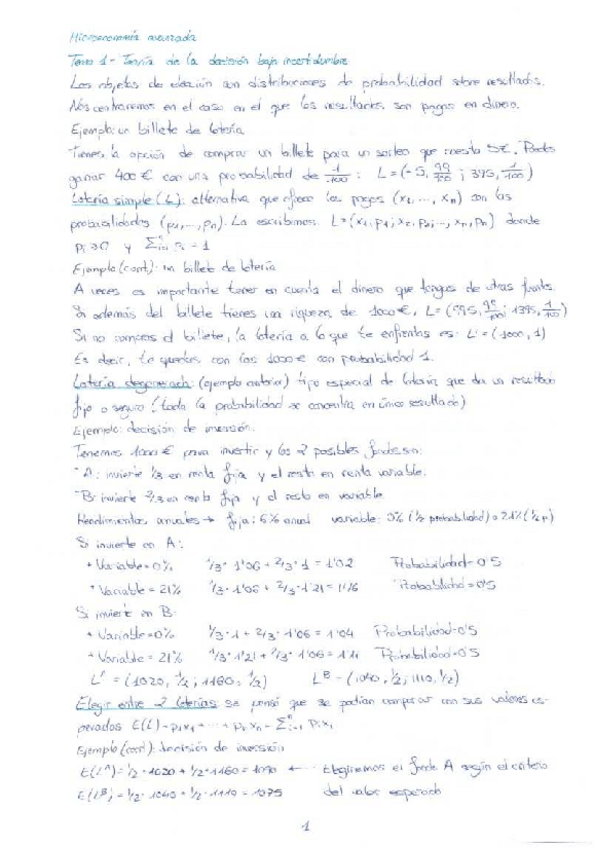 Microeconomía avanzada
Tema 1 - Teoría de la decisión bajo incertidumbre
Los objetos de elección son distribuciones de probabilidad sobre resultados.
Nos centraremos en el caso en el que los resultados son pagos en dinero.
Ejemplo: un billete de lotería
Tienes la opción de comprar un billete para un sorteo que cuesta 5€. Puedes
ganar 400€ con una probabilidad de 1/100 : L = (-5, 99/100 ; 395, 1/100)
Lotería simple (L): alternativa que ofrece los pagos (x1, ..., xn) con las
probabilidades (p1, ..., pn). La escribimos: L = (x1, p1; x2, p2; ..., xn, pn) donde
pi ≥ 0 y Σ pi = 1
Ejemplo (cont): un billete de lotería
A veces es importante tener en cuenta el dinero que tengas de otras fuentes.
Si además del billete tienes una riqueza de 1000€, L = (995, 99/100; 1395, 1/100)
Si no compras el billete, la lotería a la que te enfrentas es: L' = (1000, 1)
Es decir, te quedas con los 1000€ con probabilidad 1.
Lotería degenerada: (ejemplo anterior) tipo especial de lotería que da un resultado
fijo o seguro (toda la probabilidad se concentra en único resultado)
Ejemplo: decisión de inversión.
Tenemos 1000€ para invertir y los 2 posibles fondos son:
· A: invierte 1/3 en renta fija y el resto en renta variable.
· B: invierte 2/3 en renta fija y el resto en variable
Rendimientos anuales → fija: 6% anual variable: 0% (1/2 probabilidad) o 21% (1/2 p)
Si invierte en A:
+ Variable = 0% 1/3 · 1'06 + 2/3 · 1 = 1'02 Probabilidad = 0'5
+ Variable = 21% 1/3 · 1'06 + 2/3 · 1'21 = 1'16 Probabilidad = 0'5
Si invierte en B:
+ Variable = 0% 1/3 · 1 + 2/3 · 1'06 = 1'04 Probabilidad = 0'5
+ Variable = 21% 1/3 · 1'21 + 2/3 · 1'06 = 1'11 Probabilidad = 0'5
L^A = (1020, 1/2 ; 1160, 1/2) L^B = (1040, 1/2; 1110, 1/2)
Elegir entre 2 loterías: se pensó que se podían comparar con sus valores es-
perados E(L) = p1x1 + ... + pnxn = Σ pixi
Ejemplo (cont): decisión de inversión
E(L^A) = 1/2 · 1020 + 1/2 · 1160 = 1090 ← Elegiremos el fondo A según el criterio
E(L^B) = 1/2 · 1040 + 1/2 · 1110 = 1075 del valor esperado
1